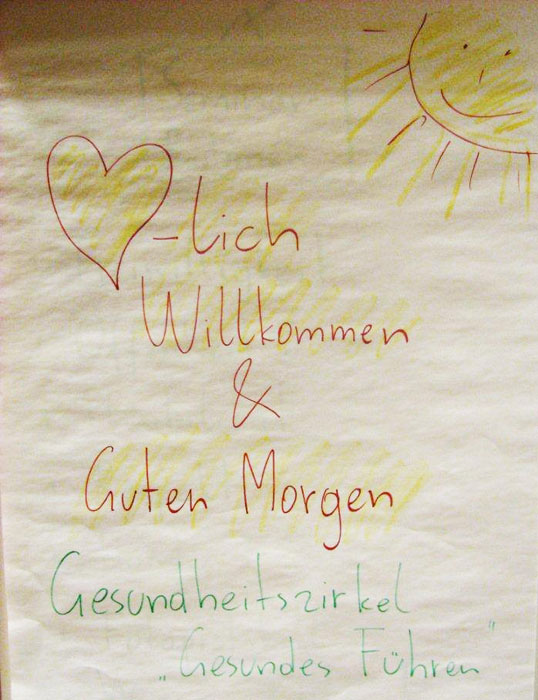 -lich
Willkommen
&
Guten Morgen
Gesundheitszirkel
„Gesundes Führen"